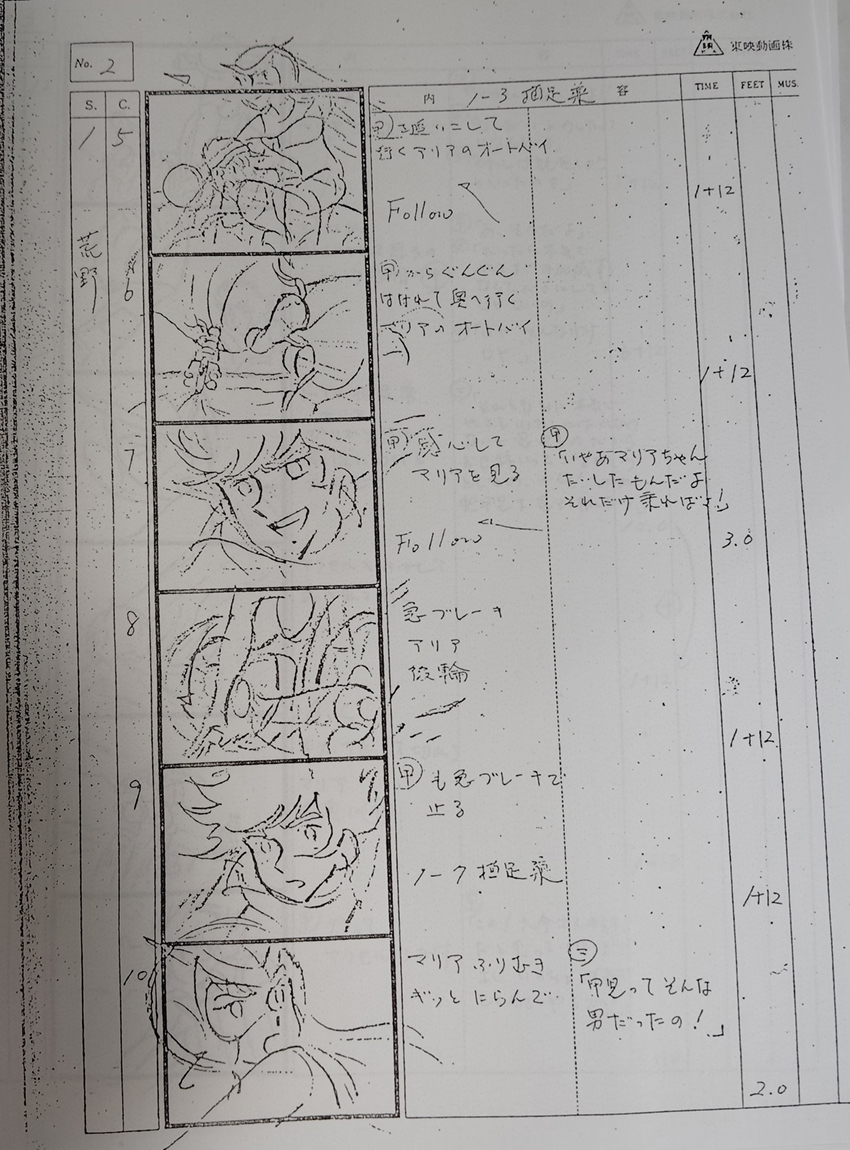 No. 2
東映動画株
S. C. 内 容 TIME FEET MUS.
1 5
行くアリアのオートバイ
Follow
1+12
荒野
6
甲からぐんぐん
はなれて奥へ行く
マリアのオートバイ
1+12
7
甲 感心して
マリアを見る
Follow
甲
「いやあマリアちゃん
たいしたもんだよ
それだけ乗れば
3.0
8
急ブレーキ
アリア
後輪
1+12
9
甲 も急ブレーキで
止る
1+12
10
マリアふりむき
ギッとにらんで
「甲児ってそんな
男だったの!」
2.0